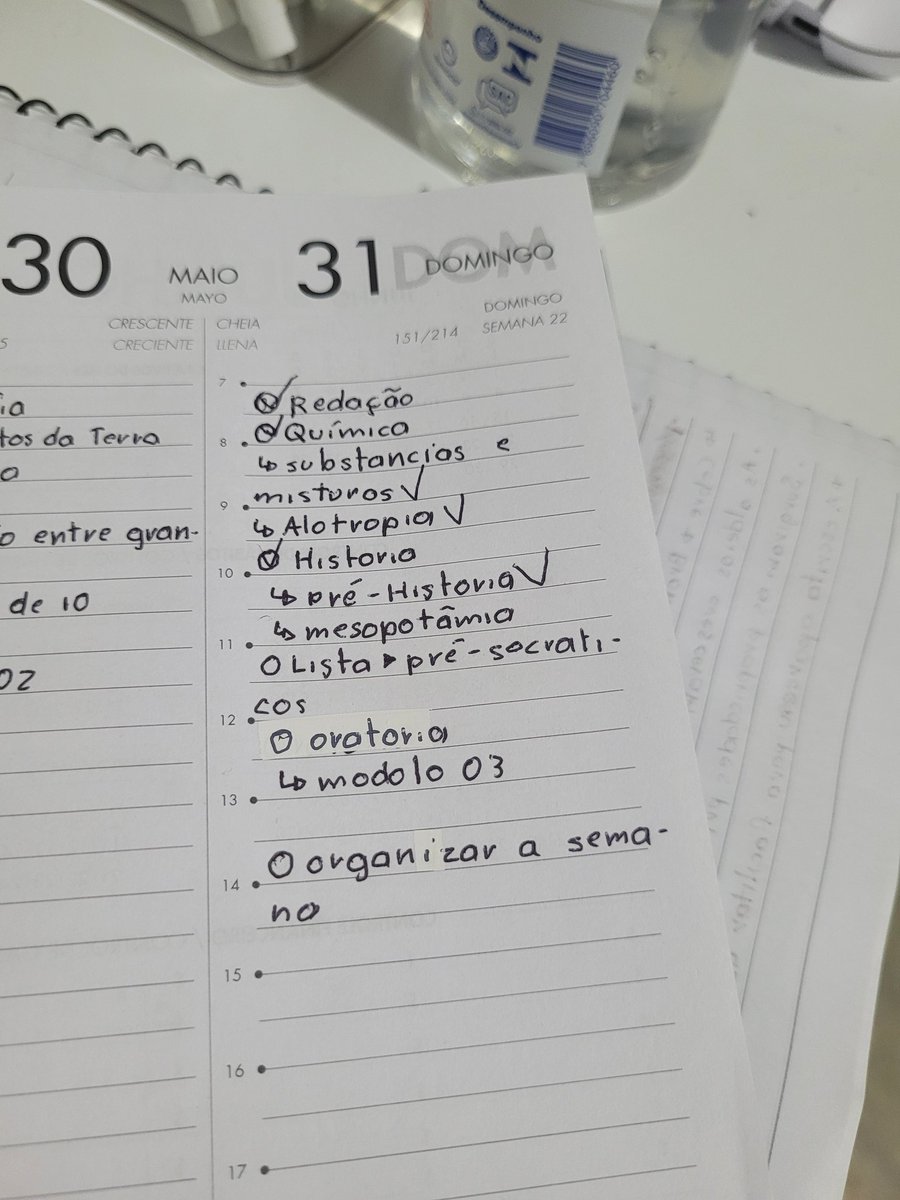 Desempenho
SAC
30
MAIO
MAYO
CRESCENTE
CRECIENTE
31
DOMINGO
DOM
CHEIA
LLENA
151/214
DOMINGO
SEMANA 22
ia
tos da Terra
a
o entre gran-
de 10
02
7
Redação
8 Química
↳ substancias e
9 misturas ✓
↳ Alotropia ✓
Historia
10
↳ pré-Historia ✓
↳ mesopotâmia
11
O Lista ▸ pré-socrati-
12 cos
O oratoria
↳ modolo 03
13
O organizar a sema-
14
na
15
16
17